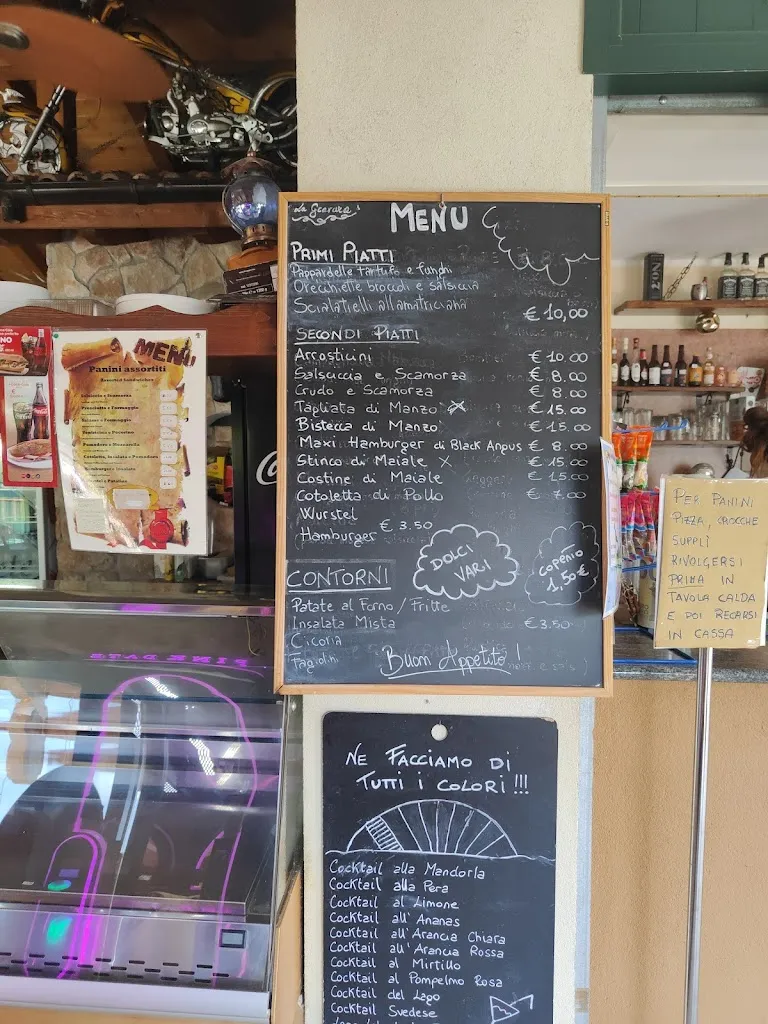 MENU
PRIMI PIATTI
Pappardelle tartufo e funghi
Orecchielle broccoli e salsiccia
Scialatielli all'amatriciana
€ 10,00
SECONDI PIATTI
Arrosticini € 10.00
Salsiccia e Scamorza € 8.00
Crudo e Scamorza € 8.00
Tagliata di Manzo € 15.00
Bistecca di Manzo € 15.00
Maxi Hamburger di Black Angus € 8.00
Stinco di Maiale x € 15.00
Costine di Maiale € 15.00
Cotoletta di Pollo € 7.00
Wurstel
€ 3.50
Hamburger
DOLCI
VARI
coperto
1,50€
CONTORNI
Patate al Forno / Fritte
Insalata Mista € 3.50
Cicoria
Fagiolini
Buon Appetito!
MENU
Panini assortiti
Prosciutto e Formaggio
Salame e Formaggio
Pomodoro e Mozzarella
PER PANINI
PIZZA, CROCCHE
SUPPLÌ
RIVOLGERSI
PRIMA IN
TAVOLA CALDA
E POI RECARSI
IN CASSA
NE FACCIAMO DI
TUTTI I COLORI!!!
Cocktail alla Mandorla
Cocktail alla Pera
Cocktail al Limone
Cocktail all'Ananas
Cocktail all'Arancia Chiara
Cocktail all'Arancia Rossa
Cocktail al Mirtillo
Cocktail al Pompelmo Rosa
Cocktail del Lago
Cocktail Svedese